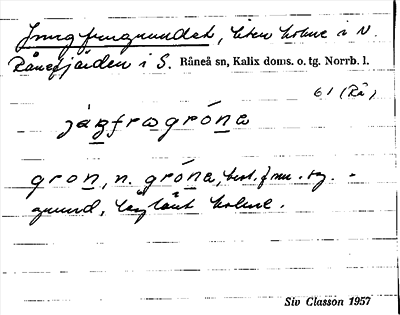 Jungfrugrundet, liten holme i N.
Rånefjärden i S. Råneå sn, Kalix doms. o. tg. Norrb. l.
61 (Rå)
jáŋfrogróna
gron, n. gróna, best. f. nu. sg. -
grund, låglänt holme.
Siv Classon 1957